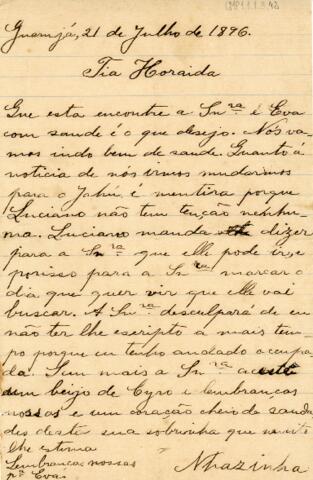 Guarujá, 21 de Julho de 1896.
Tia Horaida
Que esta encontre a Snra e Eva
com saude é o que desejo. Nós va-
mos indo bem de saude. Quanto á
noticia de nós irmos mudarmos
para o Jahú, é mentira porque
Luciano não tem tenção nenhu-
ma. Luciano manda dizer
para a Snra que elle pode ir, e
porisso para a Snra marcar o
dia que quer vir que elle vai
buscar. A Snra desculpara de eu
não ter lhe escripto a mais tem-
po porque eu tenho andado occupa-
da. Sem mais a Snra aceite
um beijo de Cyro e lembranças
nossas e um coração cheio de sauda
des desta sua sobrinha que muito
lhe estima
Nhazinha
Lembranças nossas
pa Eva